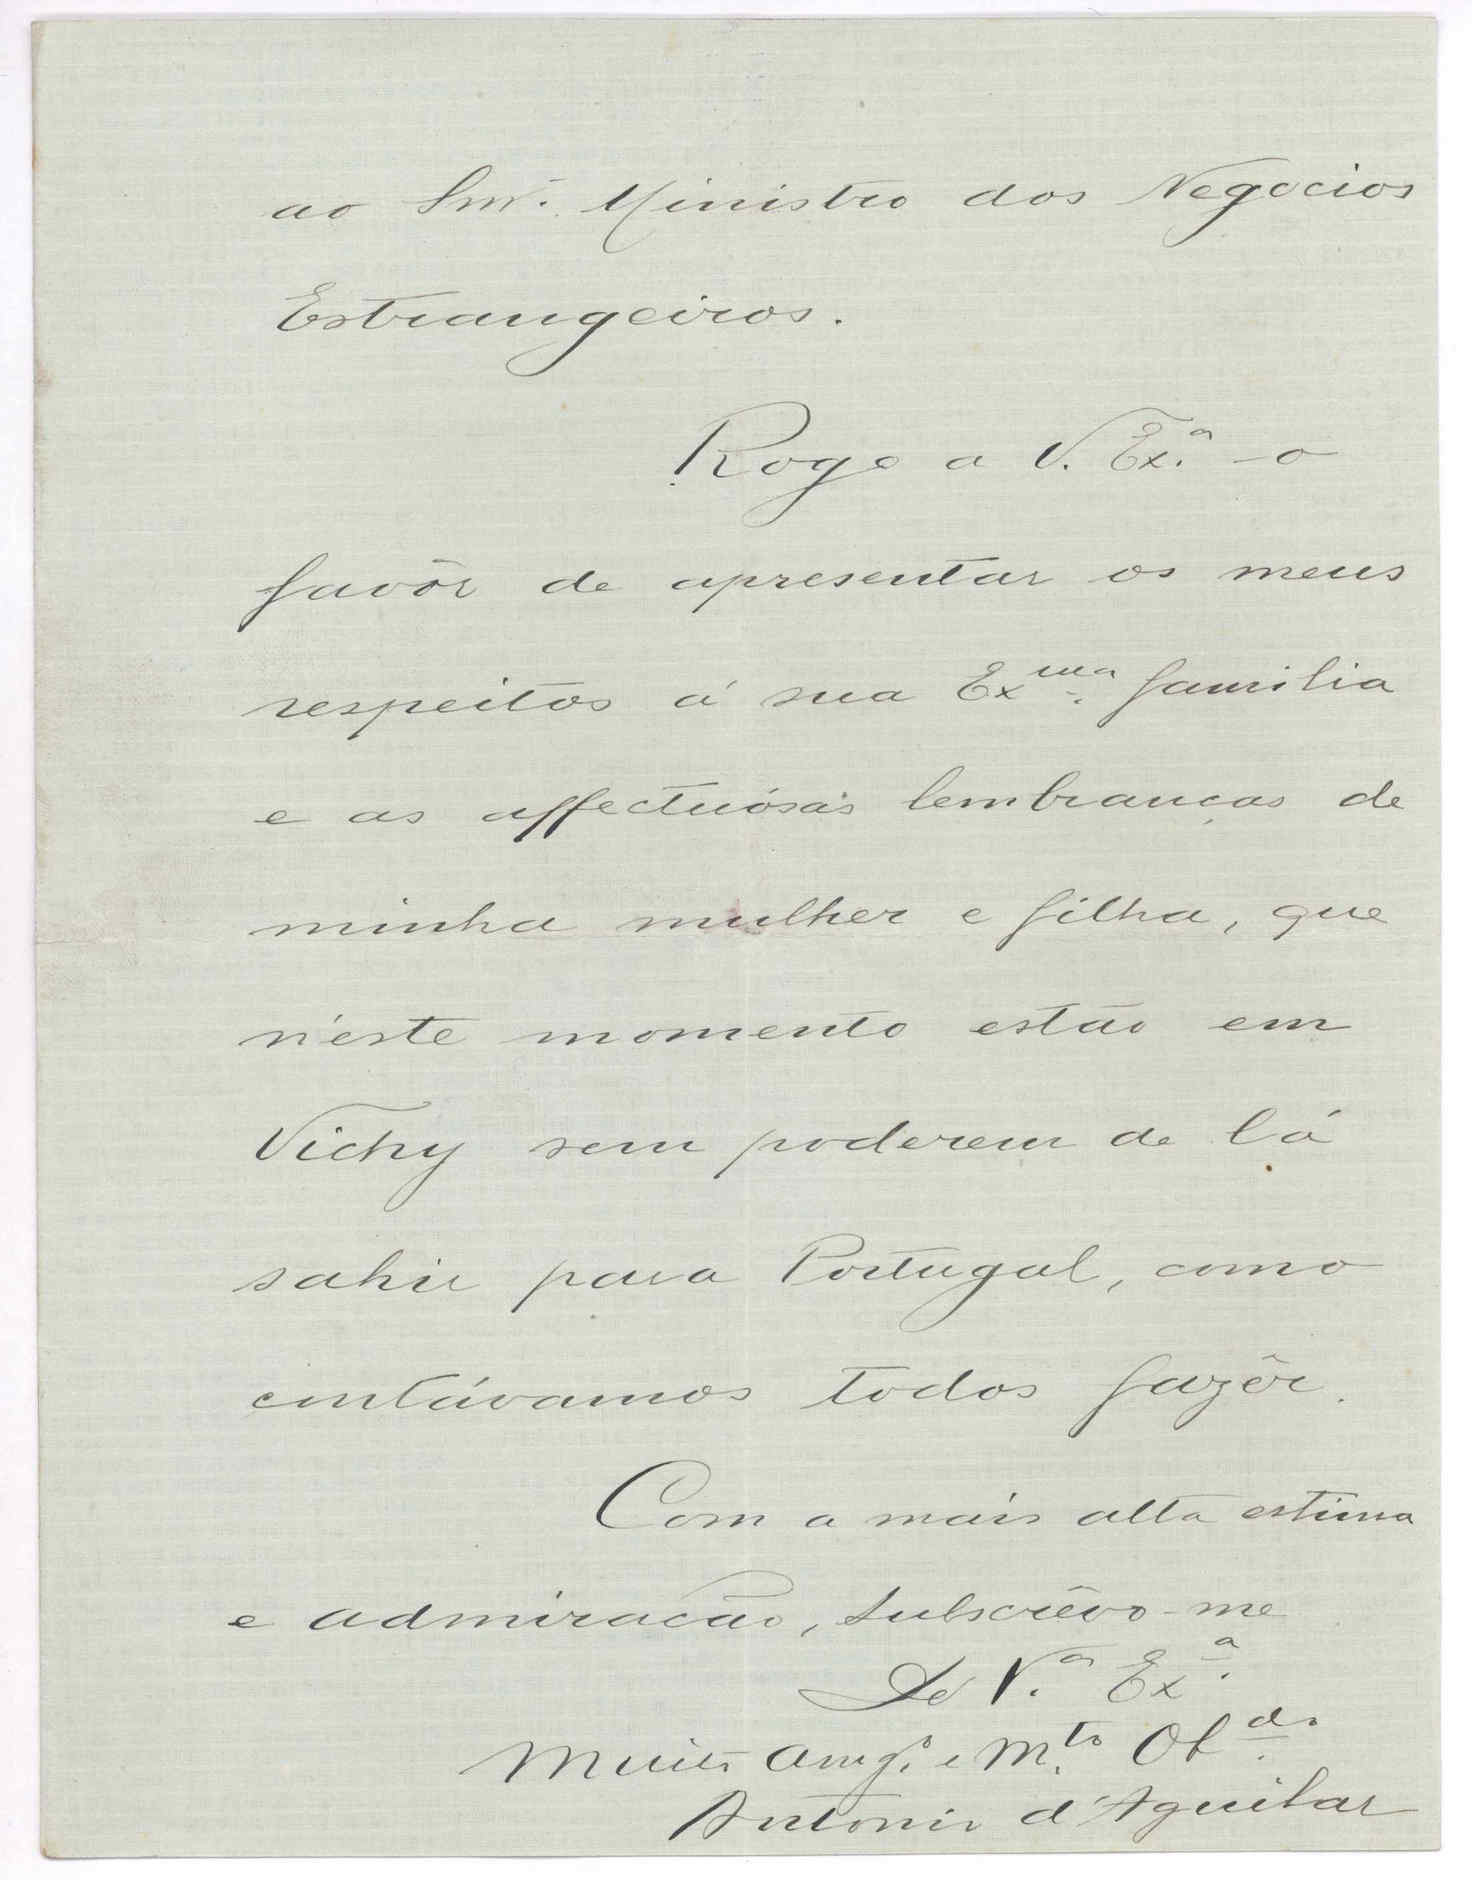 ao Snr. Ministro dos Negocios
Estrangeiros.
Rogo a V. Ex.ª o
favôr de apresentar os meus
respeitos á sua Exma. familia
e as affectuósas lembranças de
minha mulher e filha, que
n'este momento estão em
Vichy sem poderem de lá
sahir para Portugal, como
contávamos todos fazêr.
Com a mais alta estima
e admiração, subscrêvo-me
De V.ª Ex.ª
Muito Amg.º e M.to Obdo.
Antonio d'Aguilar